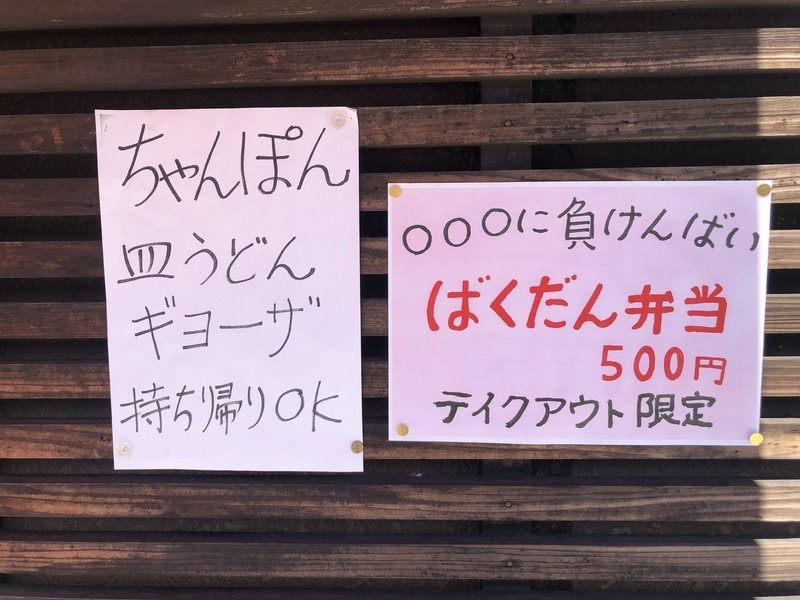 ちゃんぽん
皿うどん
ギョーザ
持ち帰りOK
○○○に負けんばい
ばくだん弁当
500円
テイクアウト限定